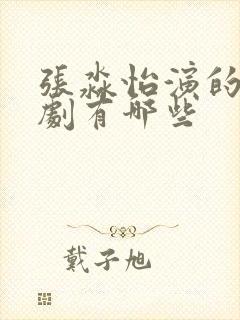 張淼怡演的
劇有哪些
戴子旭